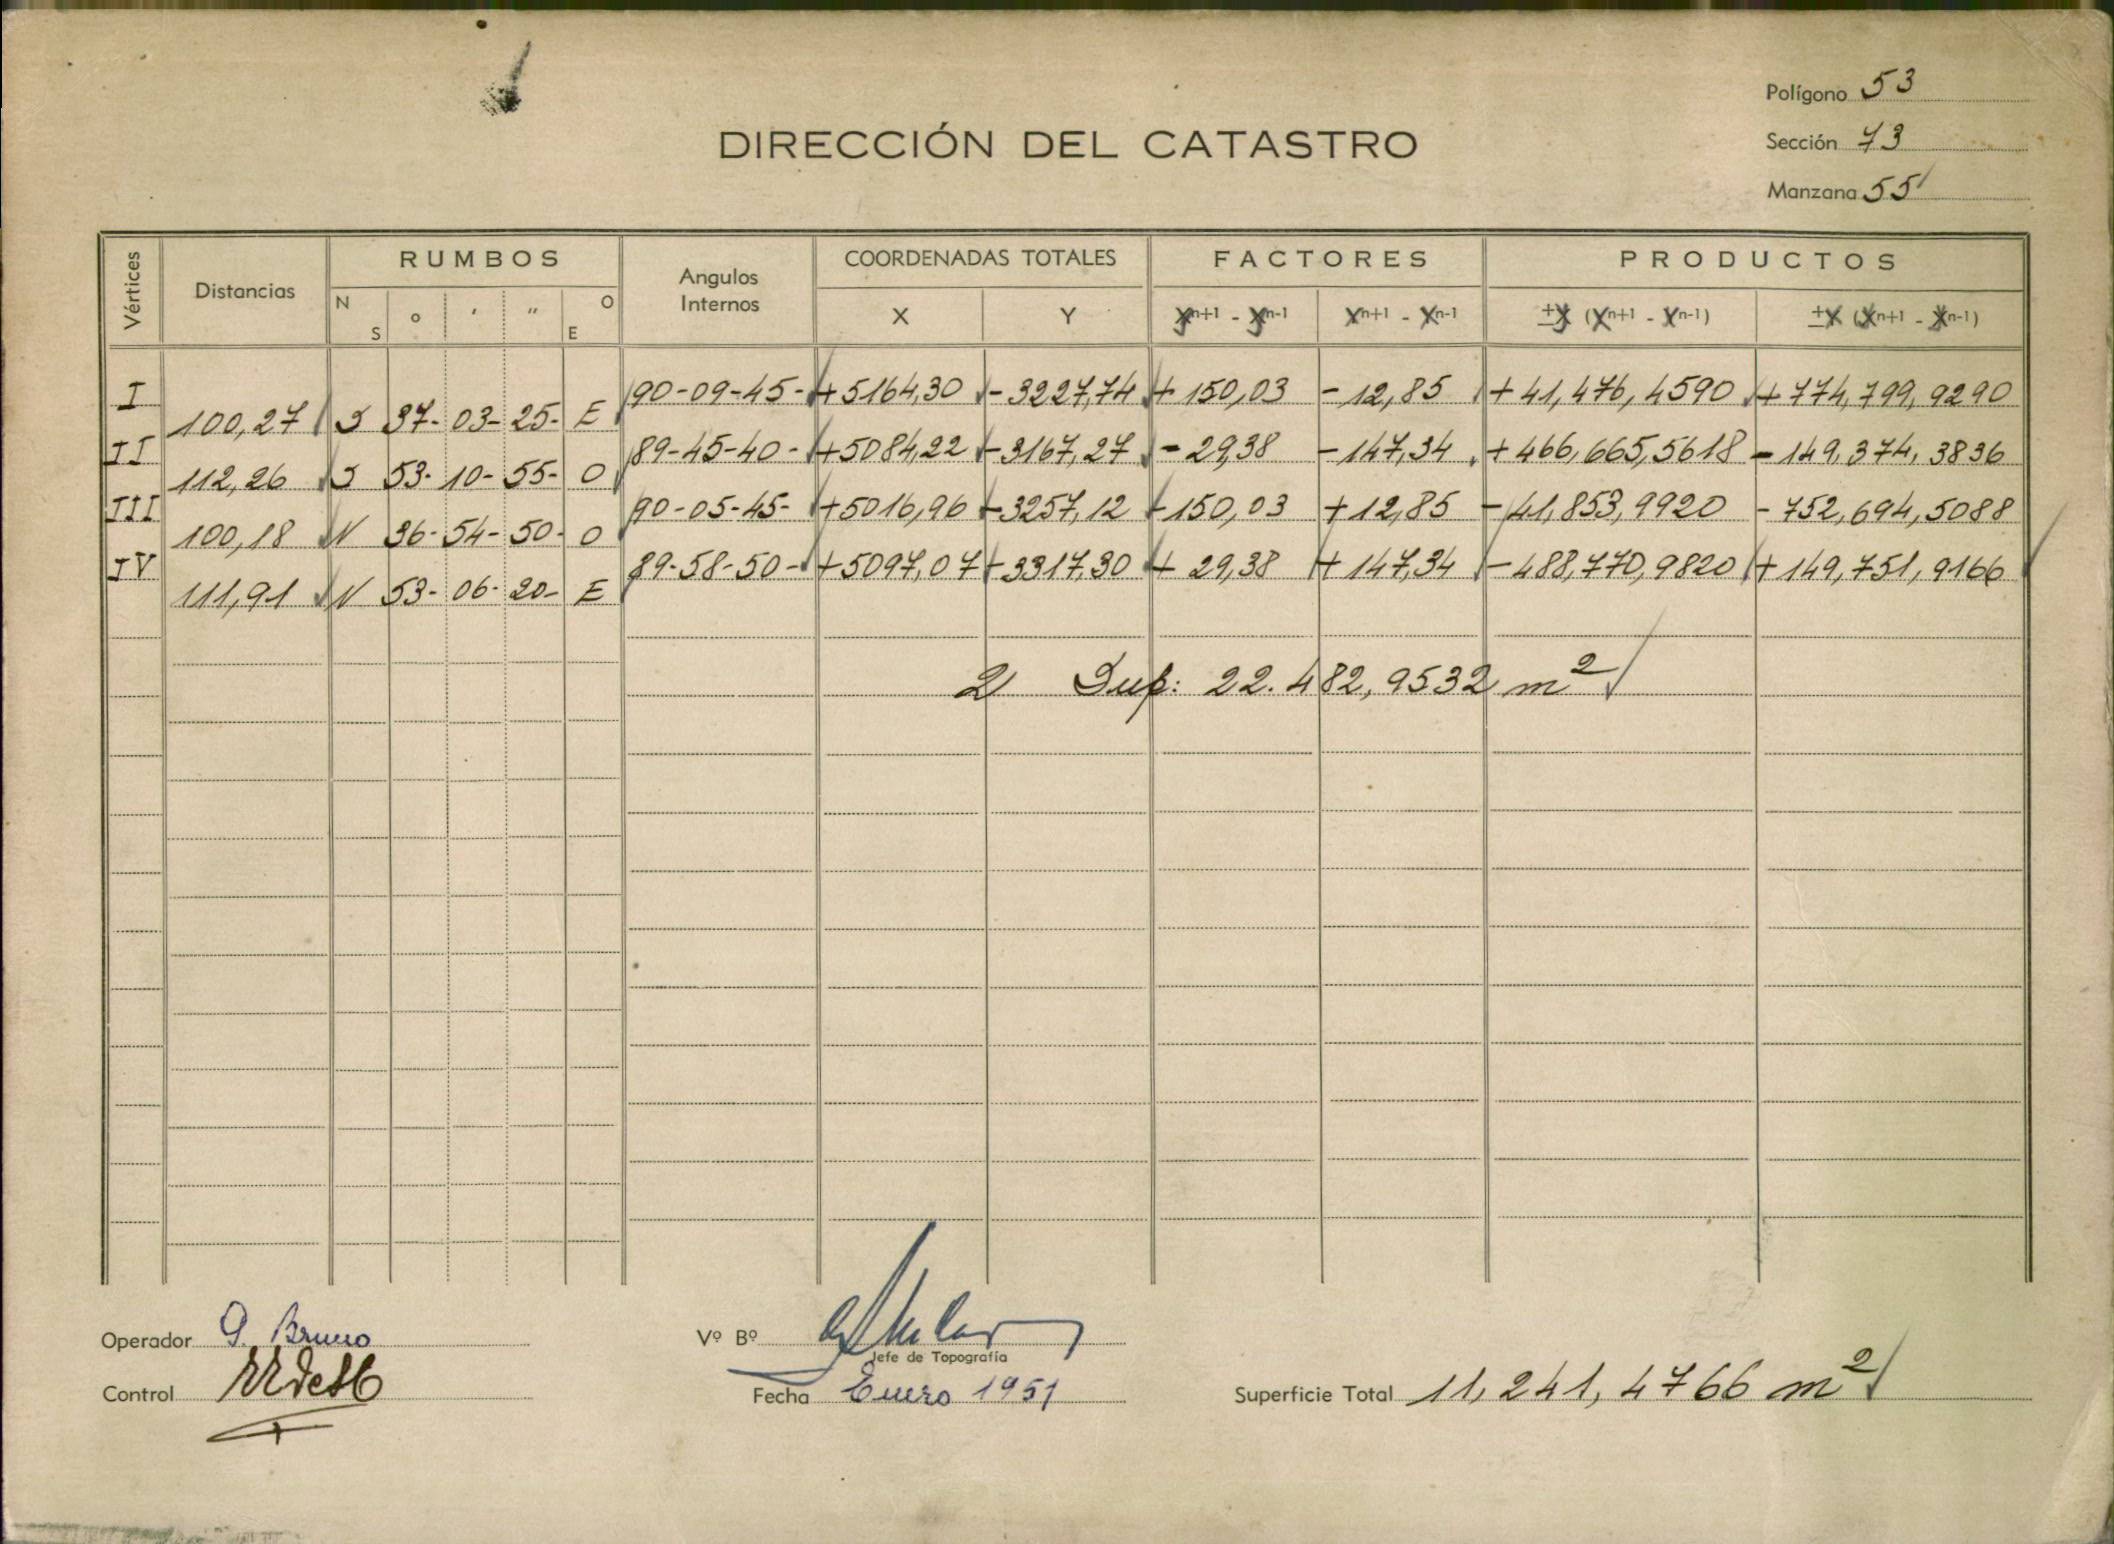 Polígono 53
DIRECCIÓN DEL CATASTRO
Sección 73
Manzana 55
Vértices Distancias RUMBOS Angulos Internos COORDENADAS TOTALES FACTORES PRODUCTOS
N S ° ' " O E X Y yn+1 - yn-1 Xn+1 - Xn-1 ±y (Xn+1 - Xn-1) ±X (yn+1 - yn-1)
I 90-09-45- +5164,30 -3227,74 +150,03 -12,85 +41,476,4590 +774,799,9290
100,27 S 37- 03- 25- E
II 89-45-40- +5084,22 -3167,27 -29,38 -147,34 +466,665,5618 -149,374,3836
112,26 S 53- 10- 55- O
III 90-05-45- +5016,96 -3257,12 -150,03 +12,85 -41,853,9920 -752,694,5088
100,18 N 36- 54- 50- O
IV 89-58-50- +5097,07 -3317,30 +29,38 +147,34 -488,770,9820 +149,751,9166
111,91 N 53- 06- 20- E
2 Sup: 22.482,9532 m²
Operador G. Bruno
Vº Bº
Jefe de Topografía
Control
Fecha Enero 1951
Superficie Total 11,241,4766 m²